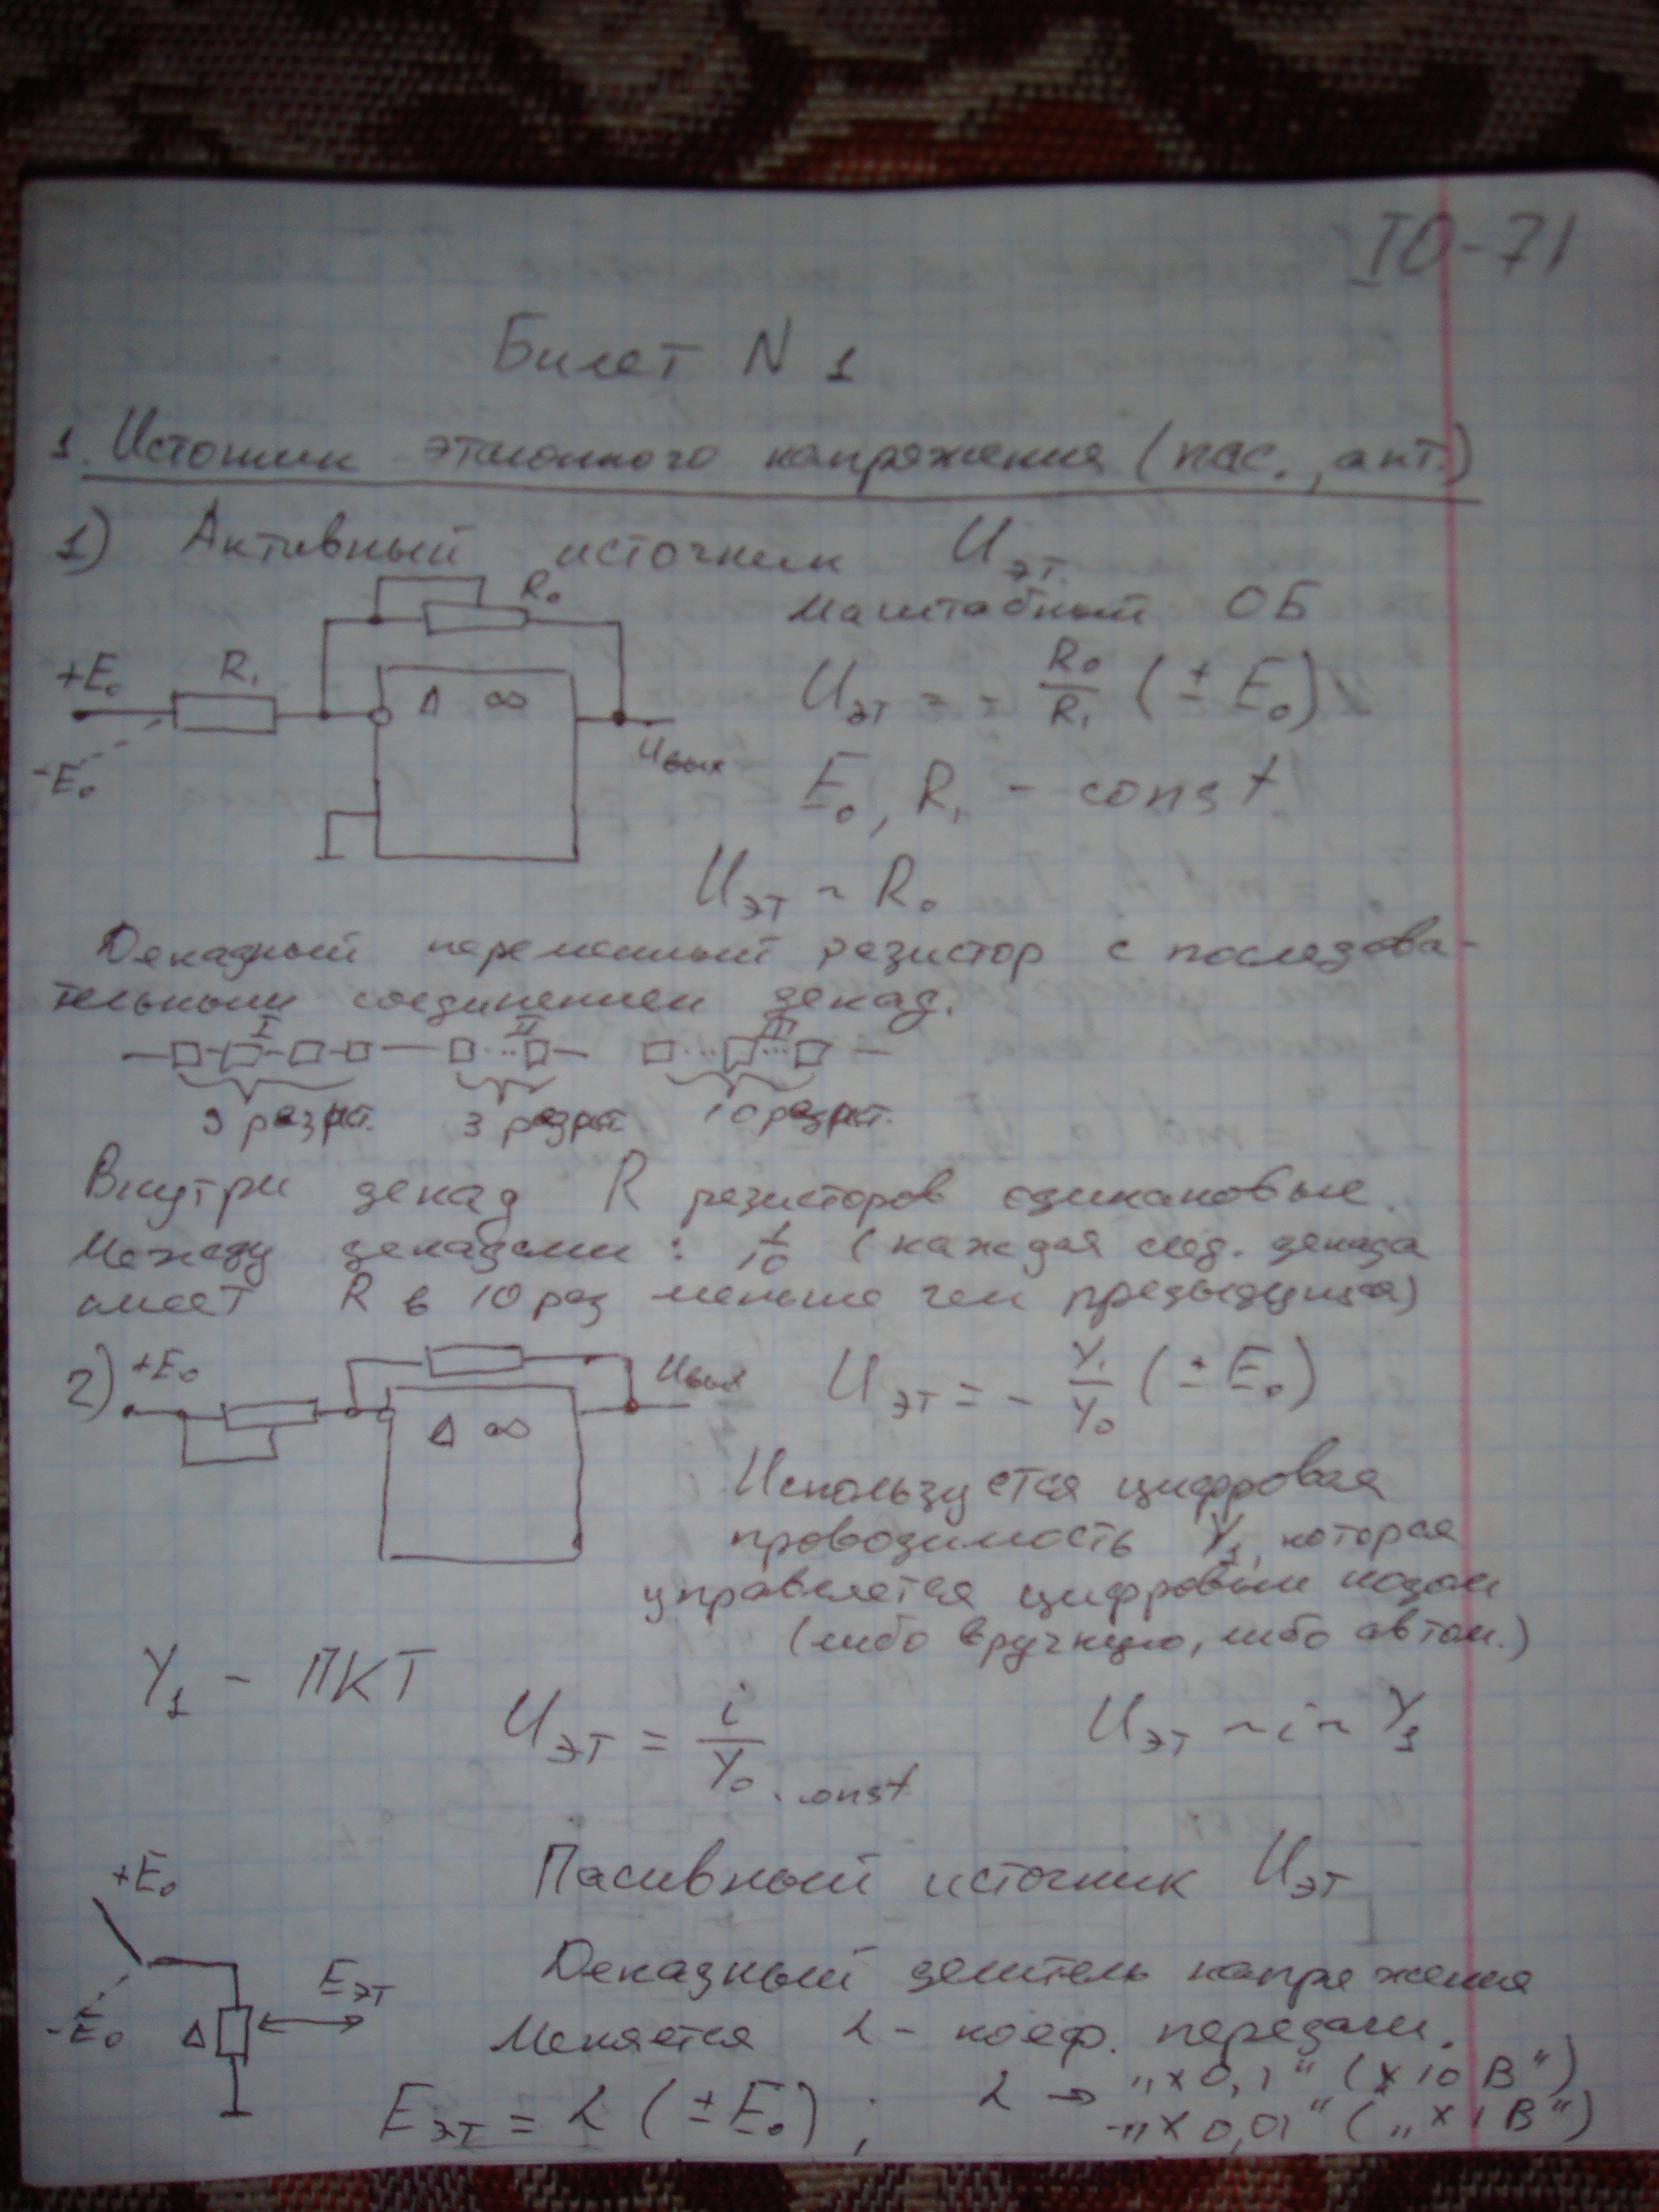 IO-71
Билет N 1
1. Источник эталонного напряжения (пас., акт.)
1) Активный источник Uэт.
R₀
Масштабный ОБ
+E₀ R₁ Δ ∞
Uэт = - R₀/R₁ (± E₀)
-E₀ Uвых
E₀, R₁ - const.
Uэт ~ R₀
Декадный переменный резистор с последова-
тельным соединением декад.
I II III
9 разрят. 9 разрят. 10 разрят.
Внутри декад R резисторов одинаковые.
Между декадами: 1/10 (каждая след. декада
имеет R в 10 раз меньше чем предыдущая)
2) +E₀ Δ ∞ Uвых Uэт = - Y₁/Y₀ (± E₀)
Используется цифровая
проводимость Y₁, которая
управляется цифровым кодом
(либо вручную, либо автом.)
Y₁ - ПКТ
Uэт = i/Y₀ const Uэт ~ i ~ Y₁
+E₀ Пасивный источник Uэт
-E₀ Δ Eэт
Декадный делитель напряжения
Меняется α - коеф. передачи.
Eэт = α (± E₀) ; α → „×0,1“ (×10 В“)
-„×0,01“ („×1 В“)